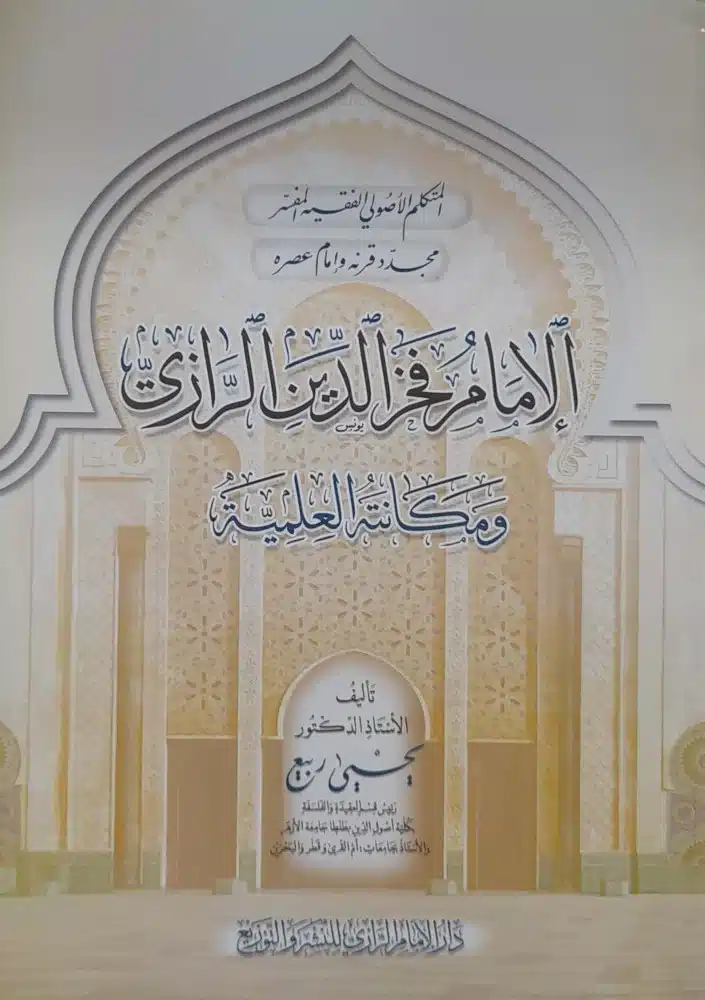 المتكلم الأصولي الفقيه المفسر
مجدّد قرنه وإمام عصره
الإمَامُ فَخرُ الدِّينِ الرَّازيّ
يونس
وَمَكَانتهُ العِلميَّة
تَأليفُ
الأستَاذِ الدكتُور
يحيى ربيع
رئيس قسم العقيدة والفلسفة
بكلية أصول الدين بطنطا جامعة الأزهر
والأستاذ بجامعات: أم القرى وقطر والبحرين
دَار الإمَام الرَّازي للنشر وَالتوزيع